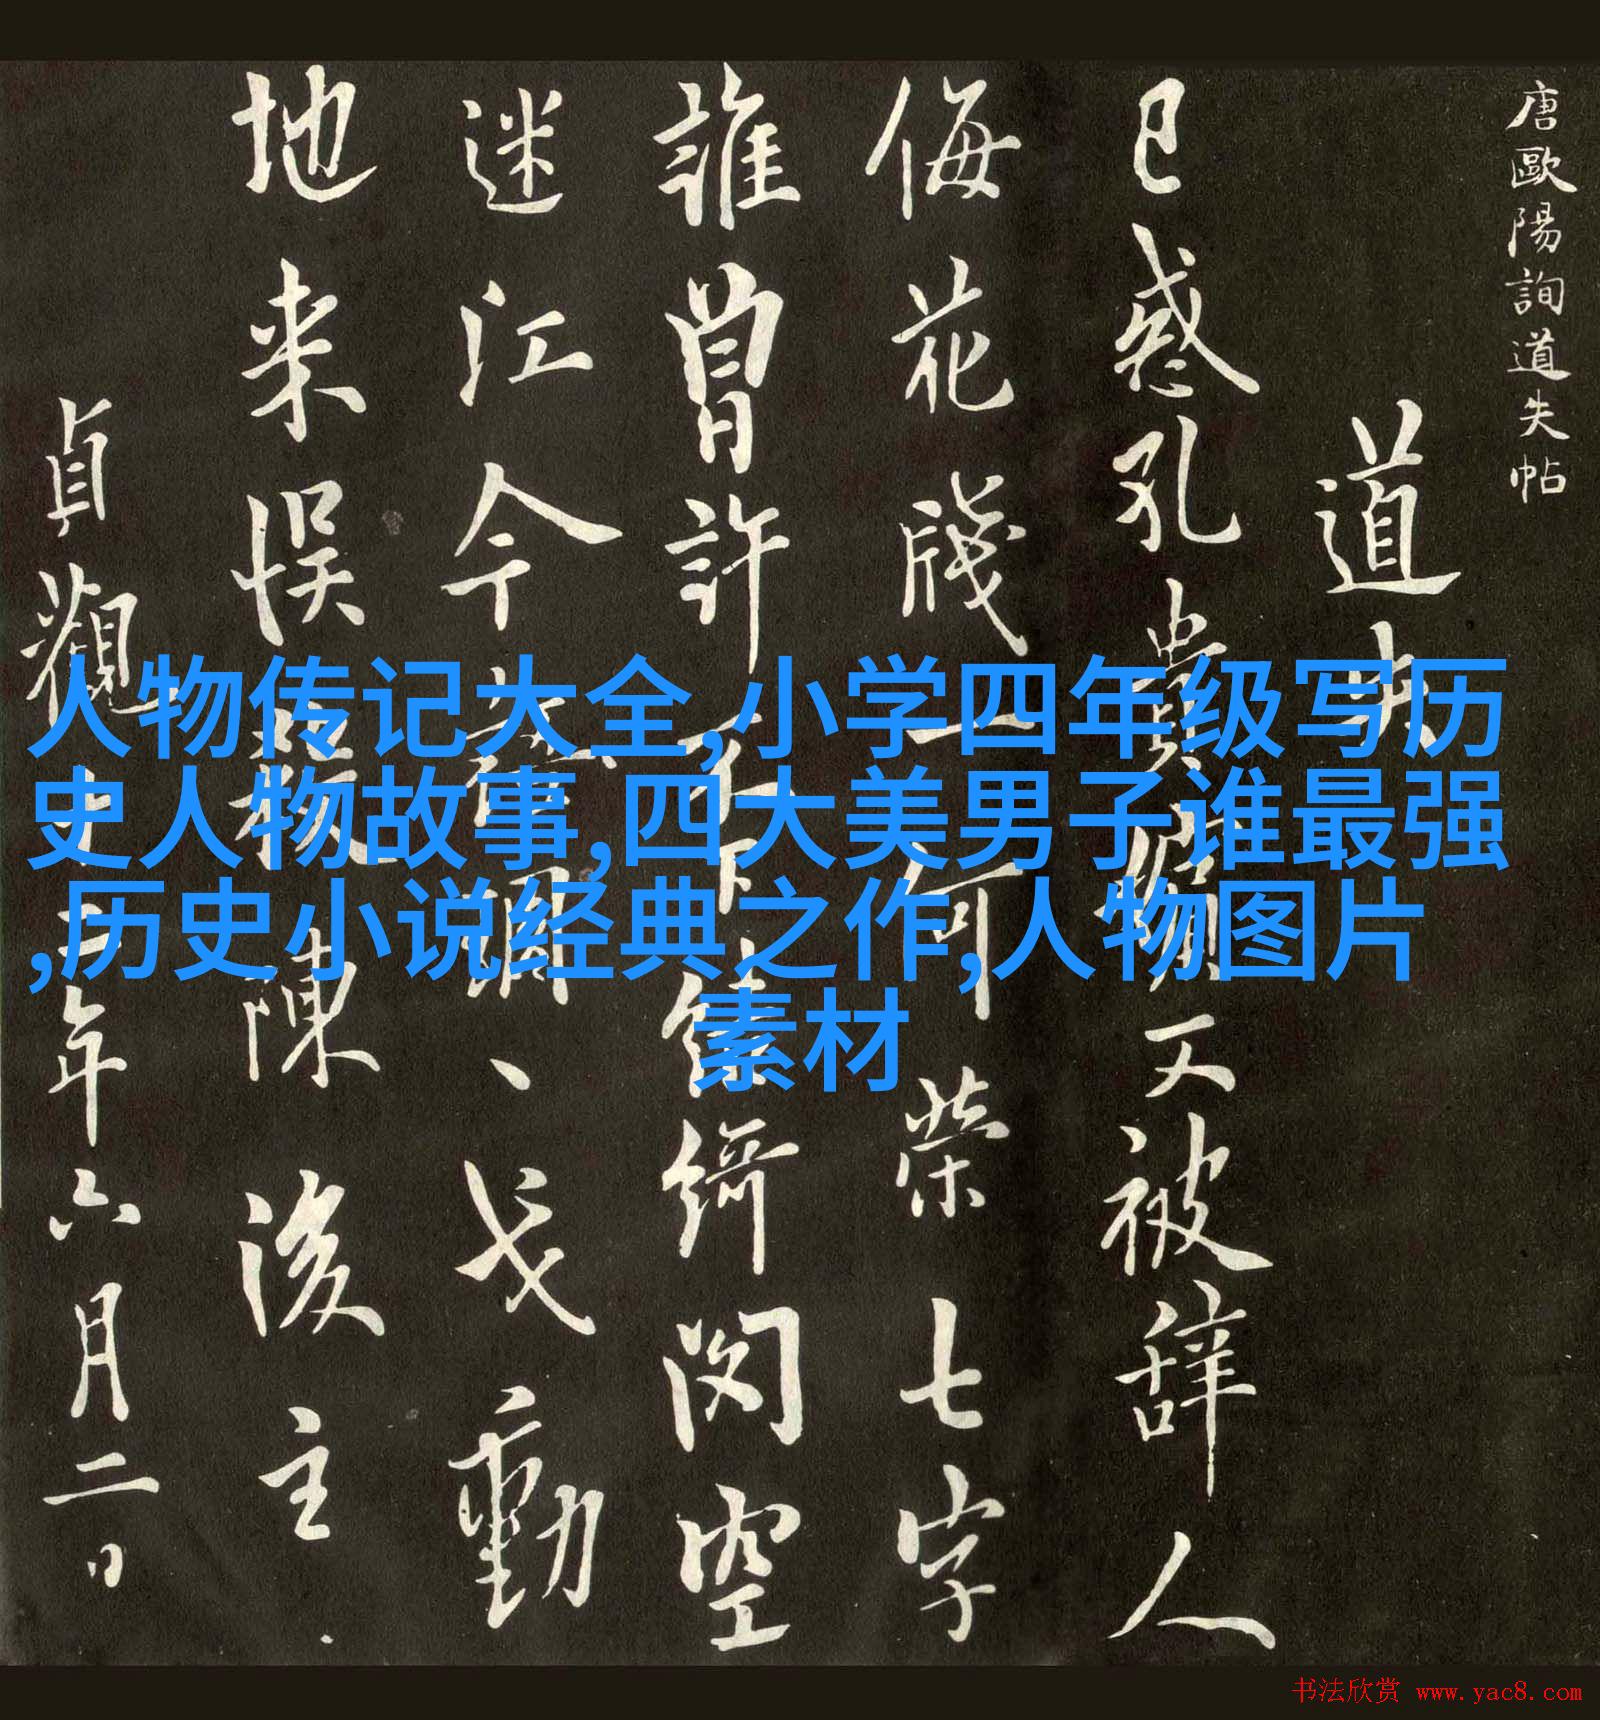 唐歐陽詢道失帖
道失
已惑孔貴嬪又被辭人
侮花牋一何榮七字
誰曾許不綺空
迷江令調戈動
地来悮殺陳後主
貞觀十三年六月二日
人物传记大全,小学四年级写历
史人物故事,四大美男子谁最强
,历史小说经典之作,人物图片
素材
书法欣赏 www.yac8.com